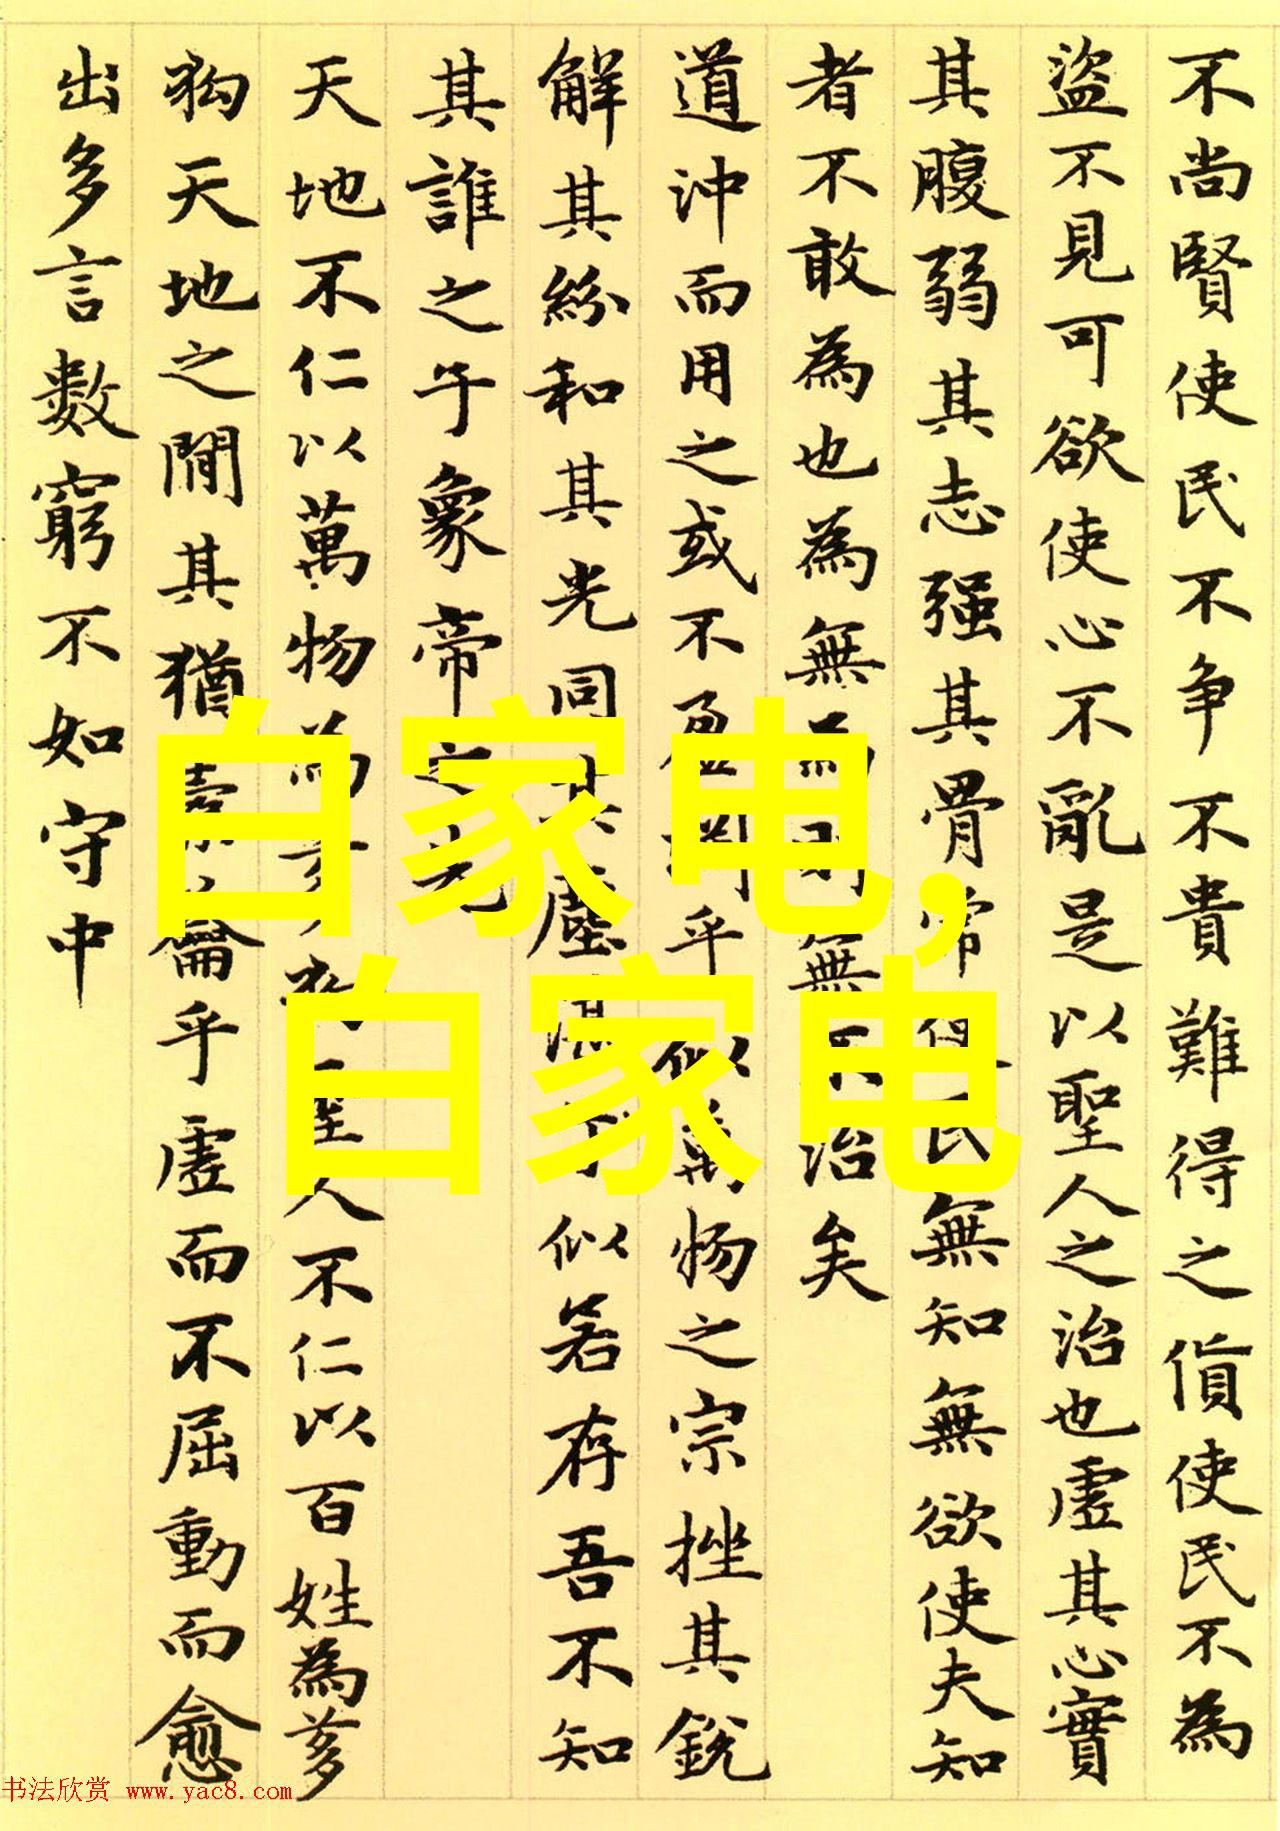 不尚賢使民不争不貴難得之貨使民不為
盜不見可欲使心不亂是以聖人之治也虛其心實
其腹弱其志强其骨常使民無知無欲使夫知
者不敢為也為無為則無不治矣
道沖而用之或不盈乎似萬物之宗挫其銳
解其紛和其光同其塵似若存吾不知
其誰之子象帝之先
天地不仁以萬物為芻狗聖人不仁以百姓為芻
狗天地之間其猶橐籥乎虛而不屈動而愈
出多言數窮不如守中
白家电,
白家电
书法欣赏 www.yac8.com